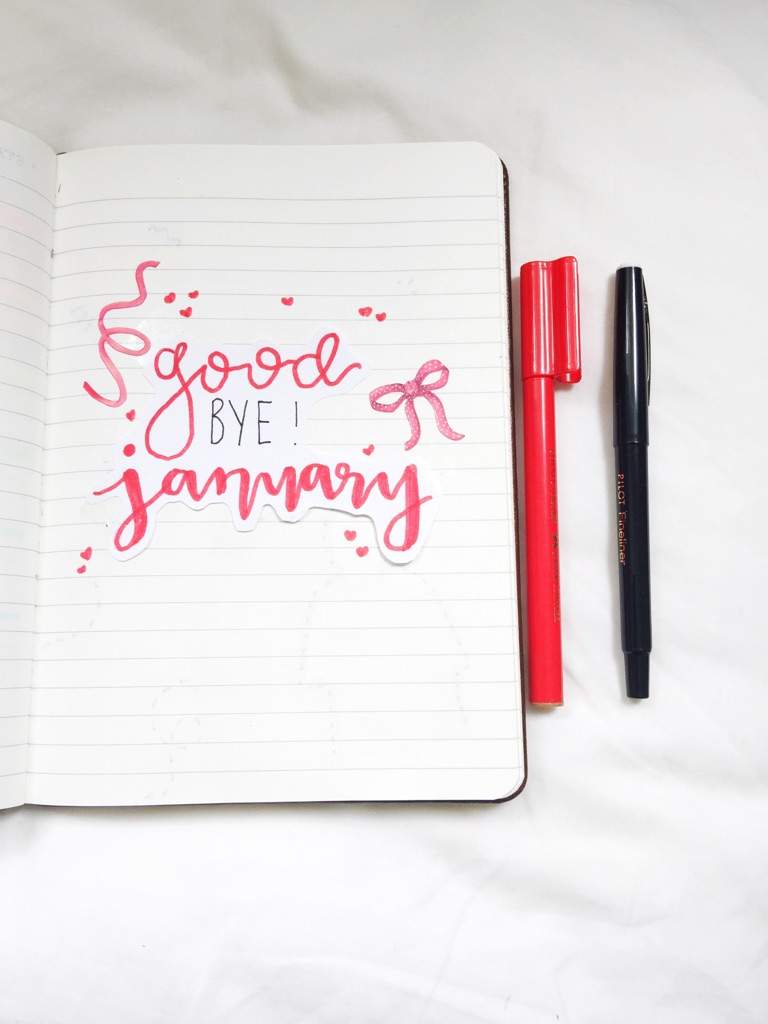 good
BYE!
january
PILOT Fineliner